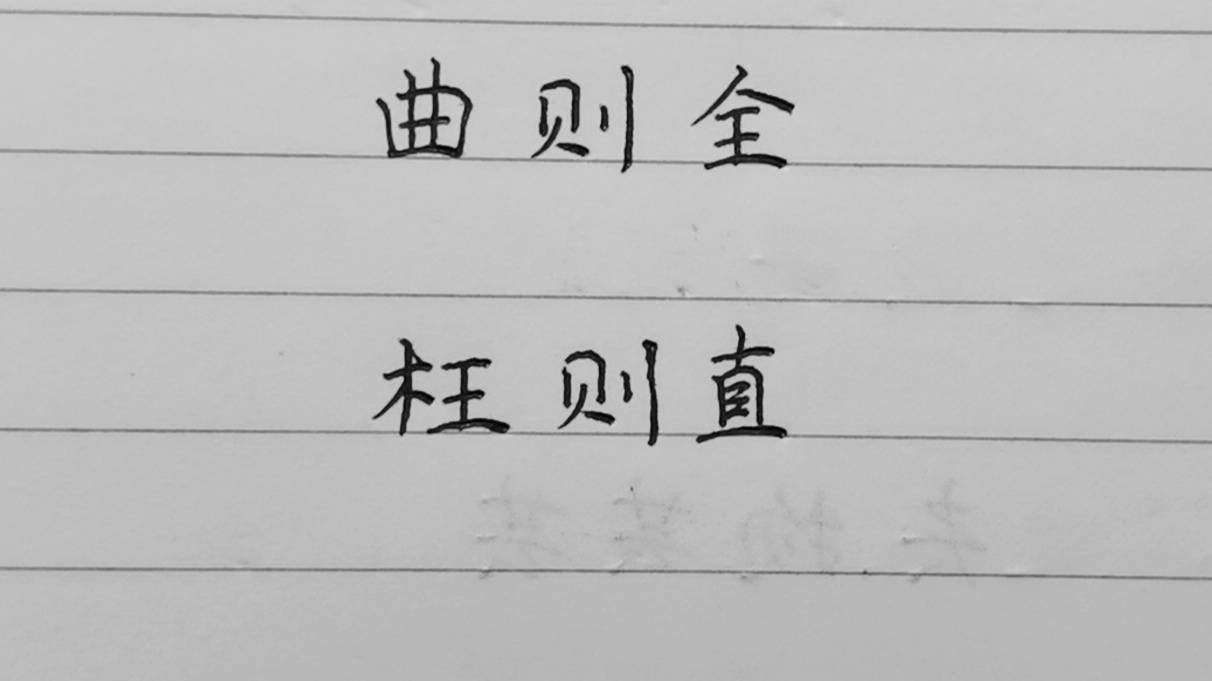 曲则全
枉则直